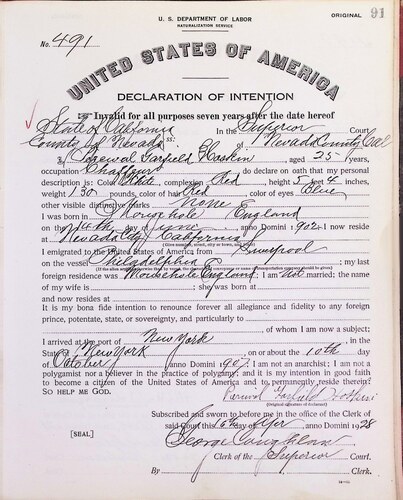 U. S. DEPARTMENT OF LABOR
NATURALIZATION SERVICE
ORIGINAL 91
No. 491
UNITED STATES OF AMERICA
DECLARATION OF INTENTION
Invalid for all purposes seven years after the date hereof
State of California
In the Superior Court
County of Nevada ss: of Nevada County, Cal
I, Percival Garfield Hoskin, aged 25 years,
occupation Chauffeur, do declare on oath that my personal
description is: Color White, complexion Red, height 5 feet 4 inches,
weight 130 pounds, color of hair Red, color of eyes Blue
other visible distinctive marks none
I was born in Mousehole England
on the 4th day of June, anno Domini 1902; I now reside
at Nevada City California
(Give number, street, city or town, and State.)
I emigrated to the United States of America from Liverpool
on the vessel Philadelphia; my last
(If the alien arrived otherwise than by vessel, the character of conveyance or name of transportation company should be given)
foreign residence was Mousehole England; I am not married; the name
of my wife is ; she was born at
and now resides at
It is my bona fide intention to renounce forever all allegiance and fidelity to any foreign
prince, potentate, state, or sovereignty, and particularly to
, of whom I am now a subject;
I arrived at the port of New York, in the
State of New York, on or about the 10th day
of October, anno Domini 1907; I am not an anarchist; I am not a
polygamist nor a believer in the practice of polygamy; and it is my intention in good faith
to become a citizen of the United States of America and to permanently reside therein:
SO HELP ME GOD.
Percival Garfield Hoskin
(Original signature of declarant)
Subscribed and sworn to before me in the office of the Clerk of
said Court this 6th day of, anno Domini 1928
[SEAL]
George Coughlan
Clerk of the Superior Court.
By , Clerk.